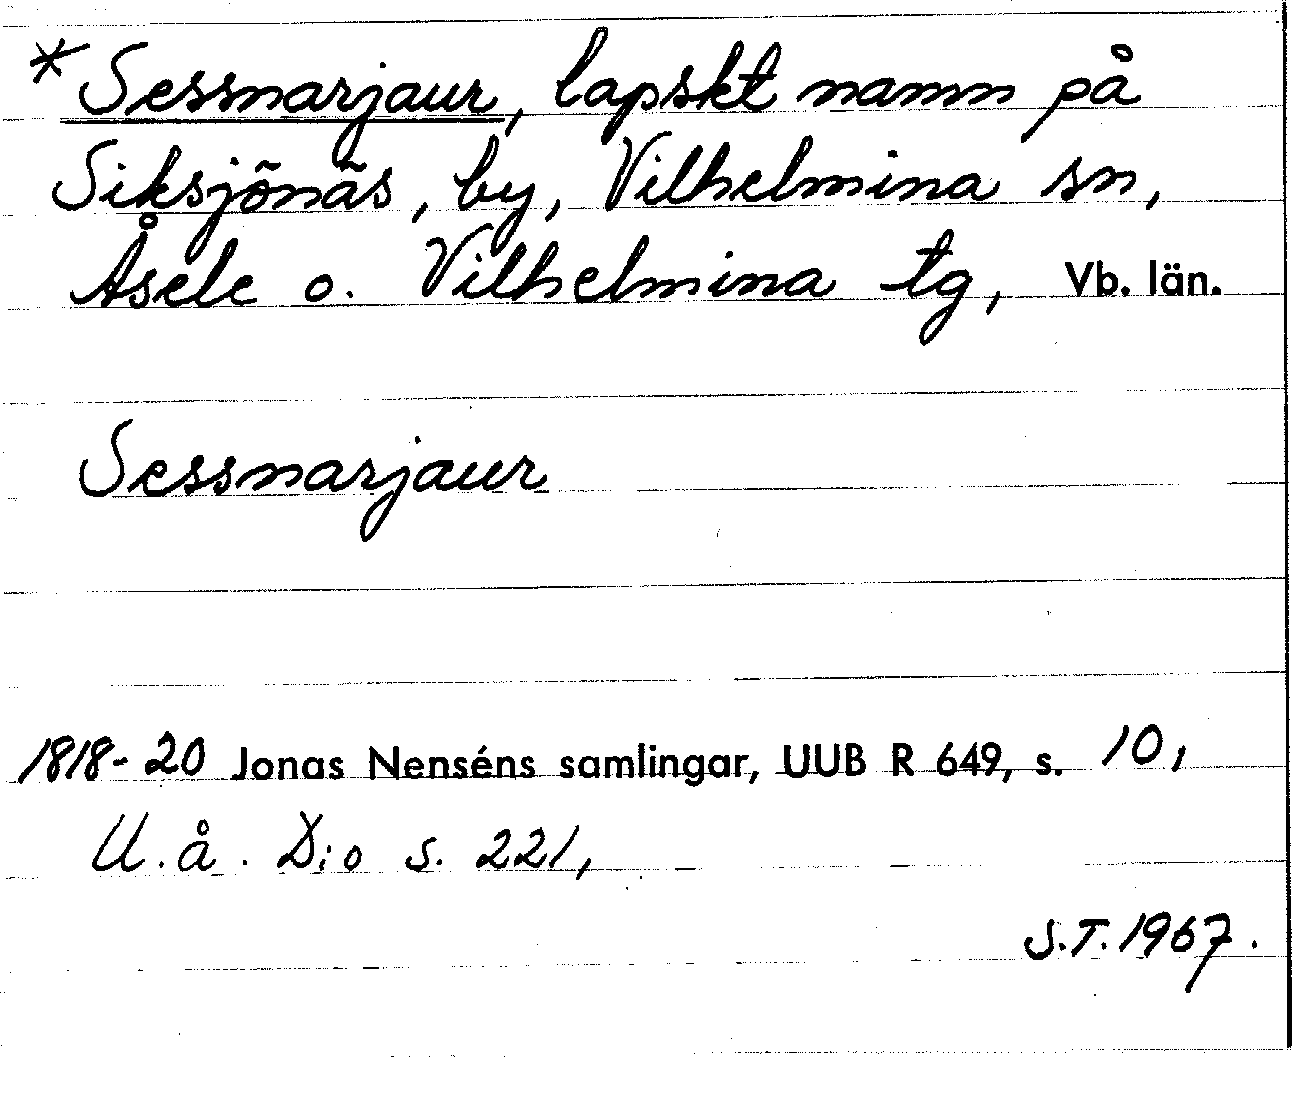 *Sessnarjaur, lapskt namn på
Siksjönäs, by, Vilhelmina sn,
Åsele o. Vilhelmina tg, Vb. län.
Sessnarjaur
1818-20 Jonas Nenséns samlingar, UUB R 649, s. 10,
U.å. D:o s. 221,
S.T. 1967.